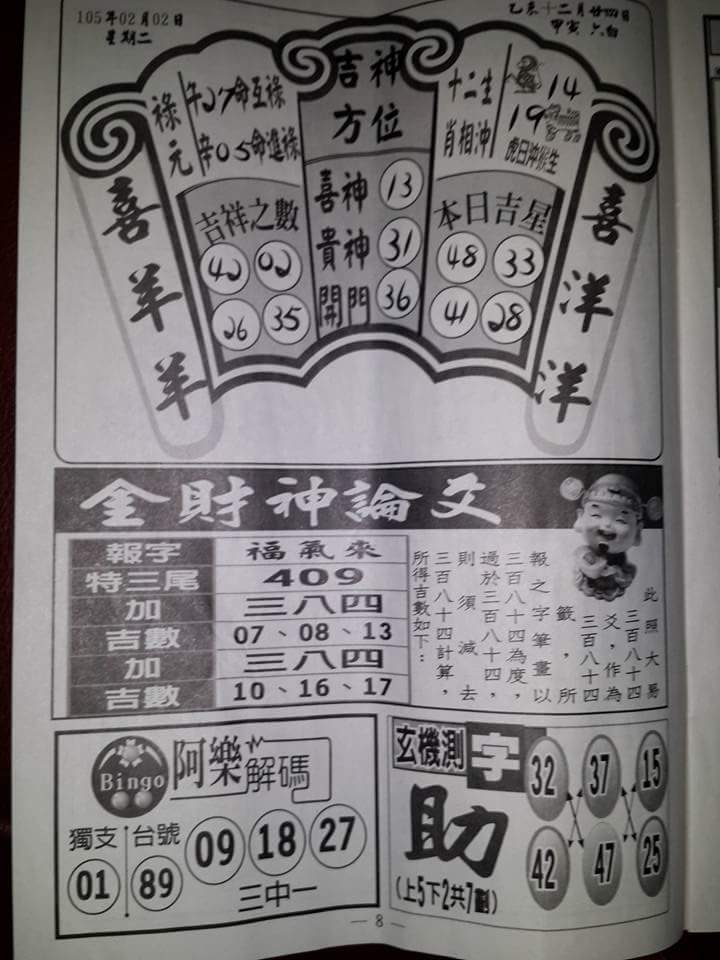 105年02月02日
星期二
乙未十二月廿四日
甲寅 六白
吉神
方位
喜神 13
貴神 31
開門 36
祿元
午27命互祿
辛05命進祿
吉祥之數
42 02
26 35
十二生
肖相沖
14
19
虎日沖猴生
本日吉星
48 33
41 28
喜羊羊
喜洋洋
金財神論爻
報字 福氣來
特三尾 409
加 三八四
吉數 07、08、13
加 三八四
吉數 10、16、17
此照大易
三百八十四
爻，作為
三百八十四
籤，所
報之字筆畫以
三百八十四為度，
過於三百八十四，
則須減去
三百八十四計算，
所得吉數如下：
Bingo
阿樂解碼
獨支 台號
01 89 09 18 27
三中一
玄機測字
助
(上5下2共7劃)
32 37 15
42 47 25
— 8 —